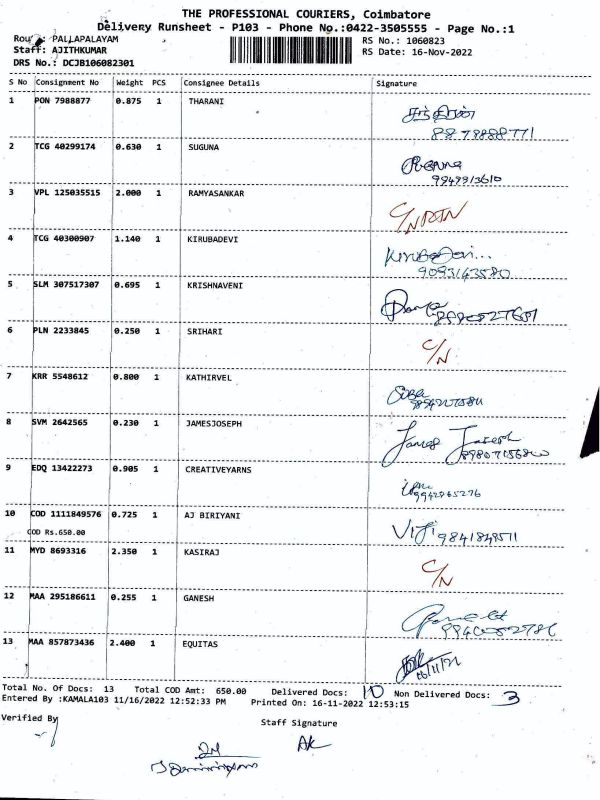 THE PROFESSIONAL COURIERS, Coimbatore
Delivery Runsheet - P103 - Phone No.:0422-3505555 - Page No.:1
Route: PALLAPALAYAM
RS No.: 1060823
Staff: AJITHKUMAR
RS Date: 16-Nov-2022
DRS No.: DCJB106082301
S No Consignment No Weight PCS Consignee Details Signature
1 PON 7988877 0.875 1 THARANI
8878888771
2 TCG 40299174 0.630 1 SUGUNA
9949913610
3 VPL 125035515 2.000 1 RAMYASANKAR C/N RTN
4 TCG 40300907 1.140 1 KIRUBADEVI Kirubadevi...
9093143580
5 SLM 307517307 0.695 1 KRISHNAVENI
6 PLN 2233845 0.250 1 SRIHARI C/N
7 KRR 5548612 0.800 1 KATHIRVEL
8 SVM 2642565 0.230 1 JAMESJOSEPH James Joseph
9 EDQ 13422273 0.905 1 CREATIVEYARNS
9942865276
10 COD 1111849576 0.725 1 AJ BIRIYANI Viji 9841849511
COD Rs.650.00
11 MYD 8693316 2.350 1 KASIRAJ C/N
12 MAA 295186611 0.255 1 GANESH
13 MAA 857873436 2.400 1 EQUITAS
16/11/22
Total No. Of Docs: 13 Total COD Amt: 650.00 Delivered Docs: 10 Non Delivered Docs: 3
Entered By :KAMALA103 11/16/2022 12:52:33 PM Printed On: 16-11-2022 12:53:15
Verified By Staff Signature
AK